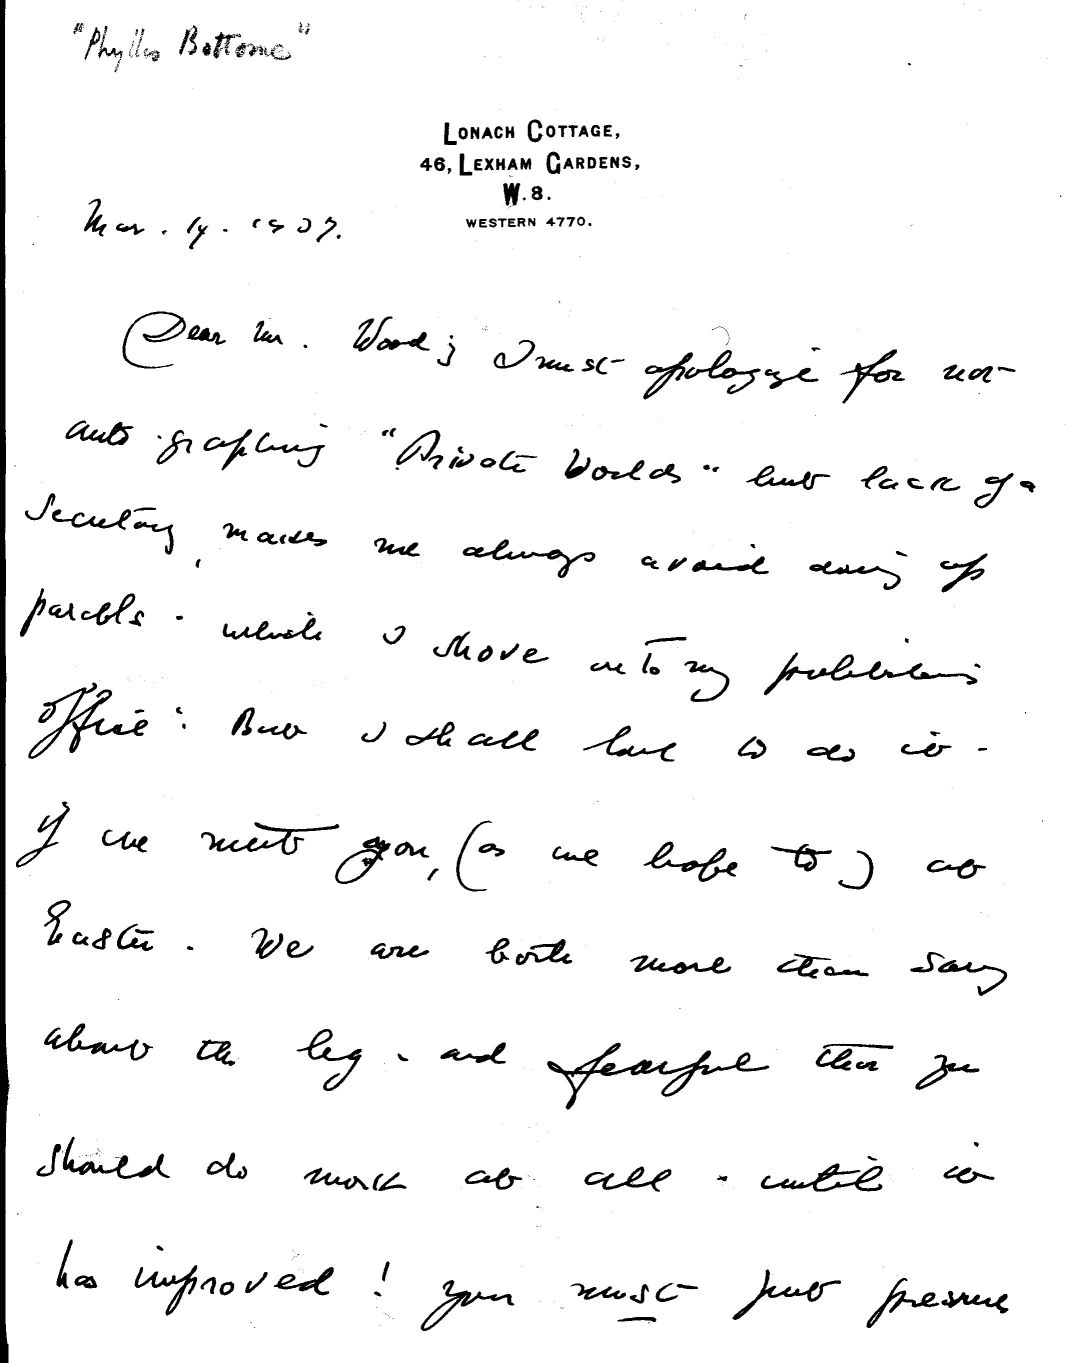 "Phyllis Bottome"
LONACH COTTAGE,
46, LEXHAM GARDENS,
W.8.
WESTERN 4770.
Mar. 14. 1937.
Dear Mr. Wood; I must apologize for not
autographing "Private Worlds" but lack of a
secretary, makes me always avoid doing up
parcels - which I shove on to my publishers
office! But I shall love to do it -
if we meet you, (as we hope to) at
Easter. We are both more than sorry
about the leg - and fearful that you
should do work at all - until it
has improved! you must put pressure